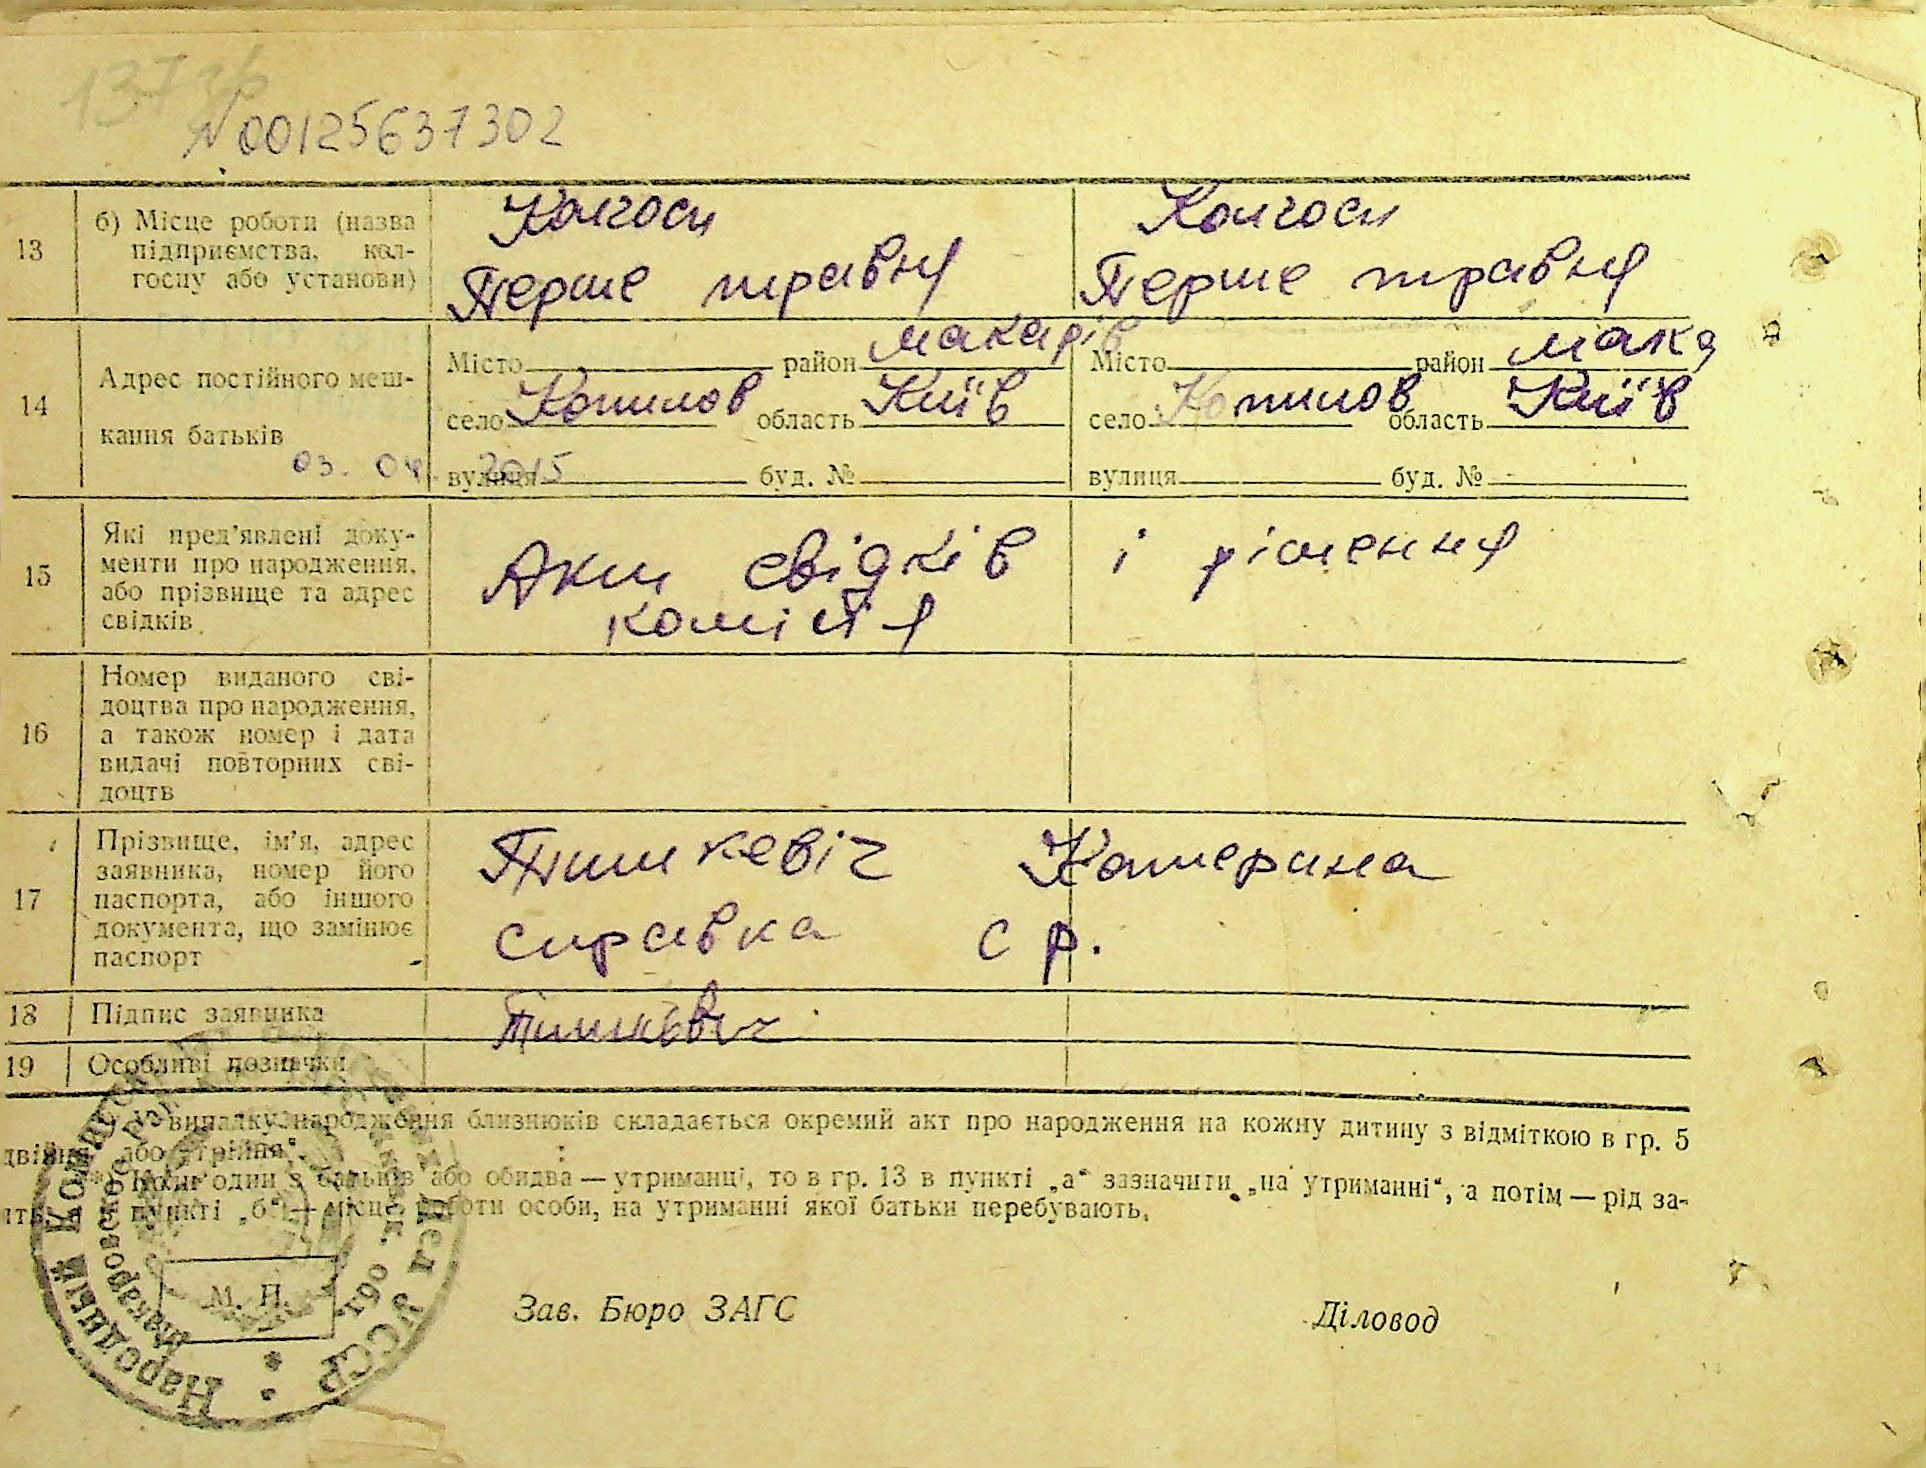 137зв
N00125637302
13 б) Місце роботи (назва підприємства, колгоспу або установи)
Колгосп Колгосп
Перше травня Перше травня
14 Адрес постійного мешкання батьків
Місто район Макарів Місто район Мака
село Копилов область Київ село Копилов область Київ
03. 04. 2015
вулиця буд. № вулиця буд. №
15 Які пред'явлені документи про народження, або прізвище та адрес свідків
Акт свідків і рішення
комісія
16 Номер виданого свідоцтва про народження, а також номер і дата видачі повторних свідоцтв
17 Прізвище, ім'я, адрес заявника, номер його паспорта, або іншого документа, що замінює паспорт
Пішкевіч Катерина
справка с р.
18 Підпис заявника
19 Особливі позначки
У випадку народження близнюків складається окремий акт про народження на кожну дитину з відміткою в гр. 5
або "трійня".
один з батьків або обидва — утриманці, то в гр. 13 в пункті „а“ зазначити „на утриманні“, а потім — рід за-
пункті „б“ — місце роботи особи, на утриманні якої батьки перебувають.
М. П.
Зав. Бюро ЗАГС Діловод
Народный Комис дел УССР
Макаровское обл.